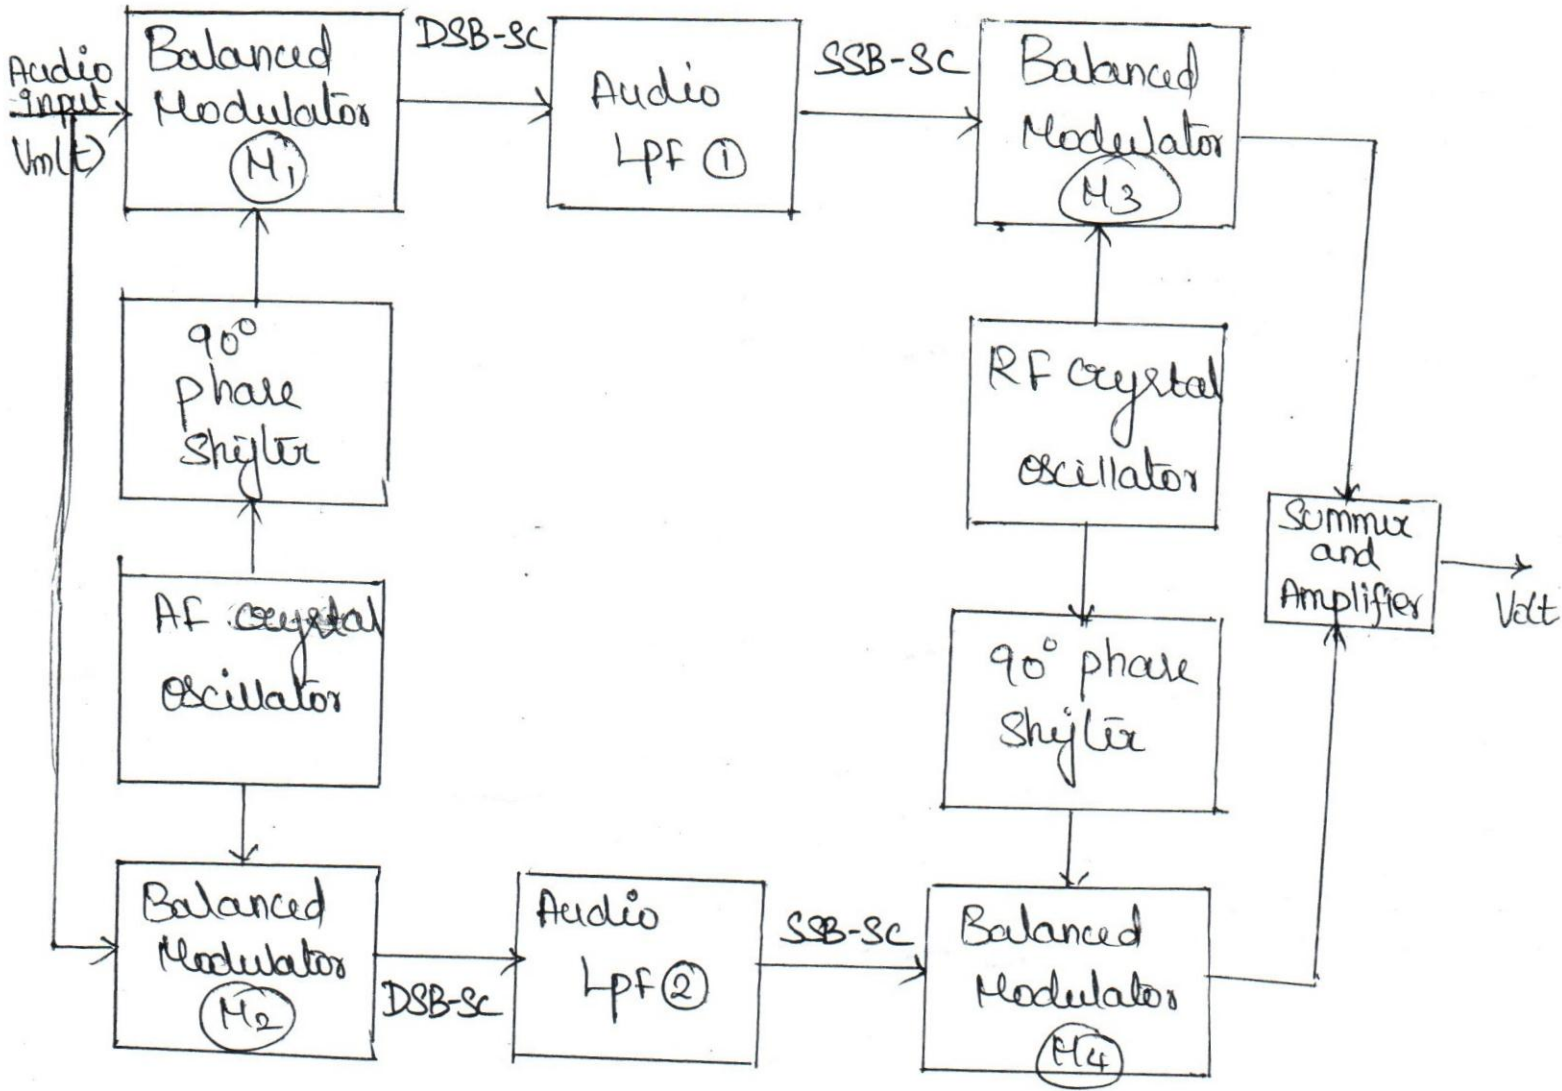 Audio
input
Vm(t)
Balanced
Modulator
M1
DSB-SC
Audio
LPF ①
SSB-SC
Balanced
Modulator
M3
90°
phase
Shifter
RF crystal
oscillator
Summer
and
Amplifier
AF crystal
oscillator
90° phase
Shifter
Balanced
Modulator
M2
DSB-SC
Audio
LPF ②
SSB-SC
Balanced
Modulator
M4